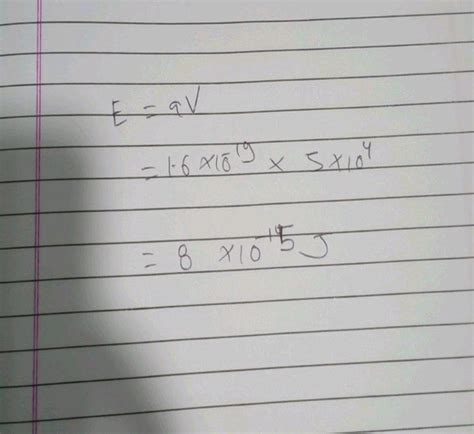 E = qV
= 1.6 × 10⁻¹⁹ × 5 × 10⁴
= 8 × 10⁻¹⁵ J